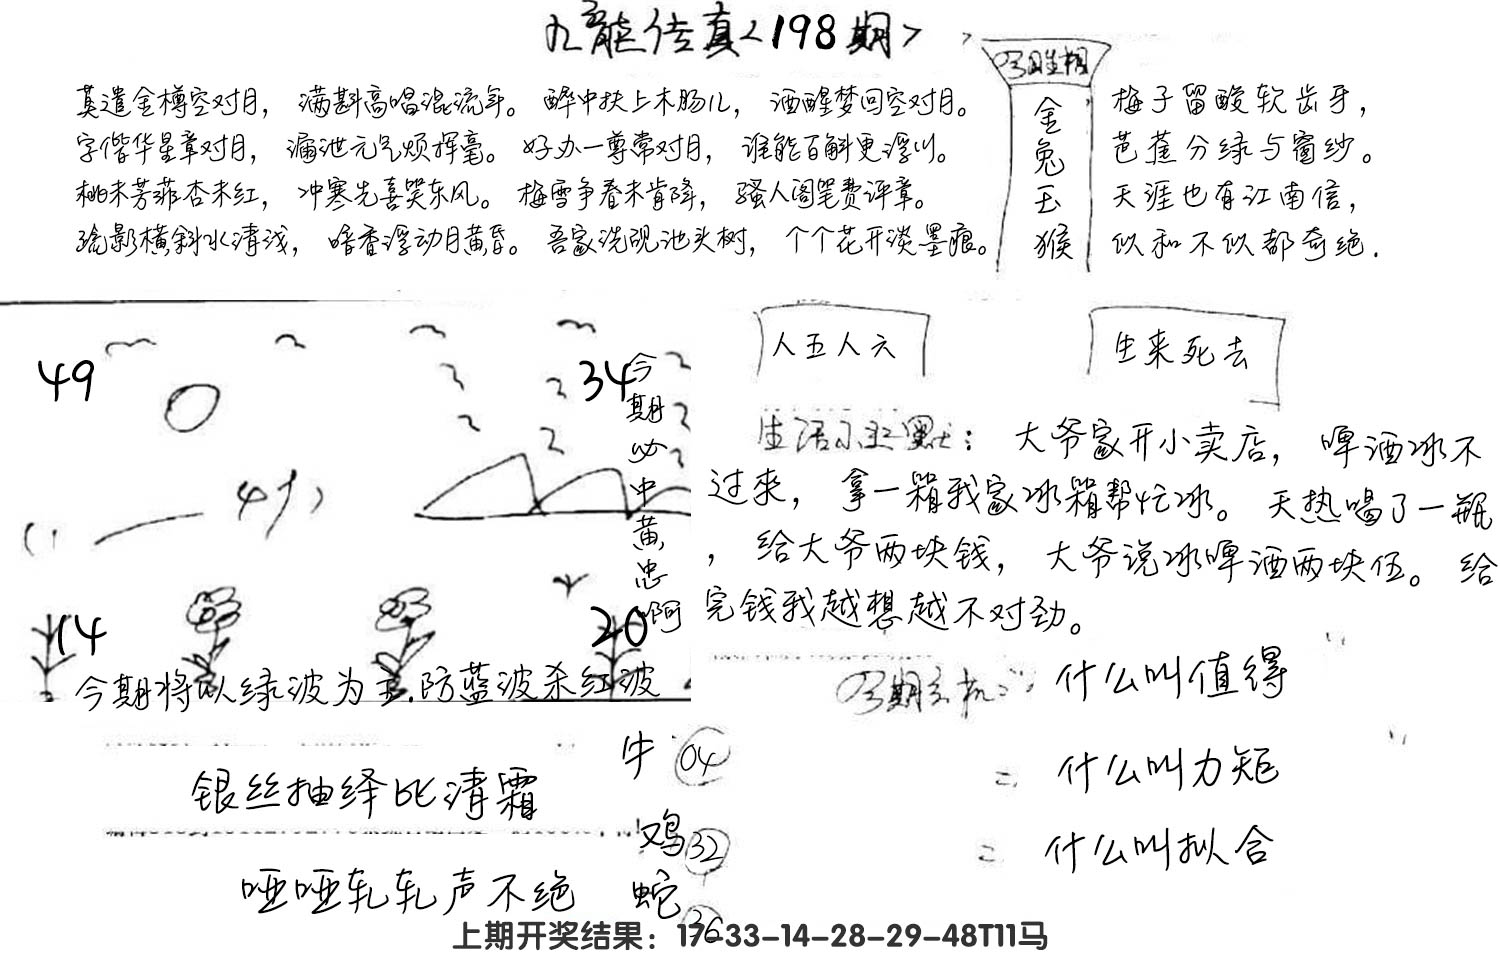 九龍传真<198期>
莫遣金樽空对月， 满斟高唱混流年。 醉中扶上木肠儿， 酒醒梦回空对月。
字偕华星章对月， 漏泄元气烦挥毫。 好办一尊常对月， 谁能百斛更浮川。
桃未芳菲杏未红， 冲寒先喜笑东风。 梅雪争春未肯降， 骚人阁笔费评章。
疏影横斜水清浅， 暗香浮动月黄昏。 吾家洗砚池头树， 个个花开淡墨痕。
金兔玉猴
梅子留酸软齿牙，
芭蕉分绿与窗纱。
天涯也有江南信，
似和不似都奇绝.
49
34
今期必中黄忠啊
14
20
今期将以绿波为主.防蓝波杀红波
人五人六
生来死去
大爷家开小卖店， 啤酒冰不
过来， 拿一箱我家冰箱帮忙冰。 天热喝了一瓶
， 给大爷两块钱， 大爷说冰啤酒两块伍。 给
完钱我越想越不对劲。
什么叫值得
= 什么叫力矩
= 什么叫拟合
银丝抽绎比清霜
哑哑轧轧声不绝
牛 04
鸡 32
蛇 36
上期开奖结果：17-33-14-28-29-48T11马